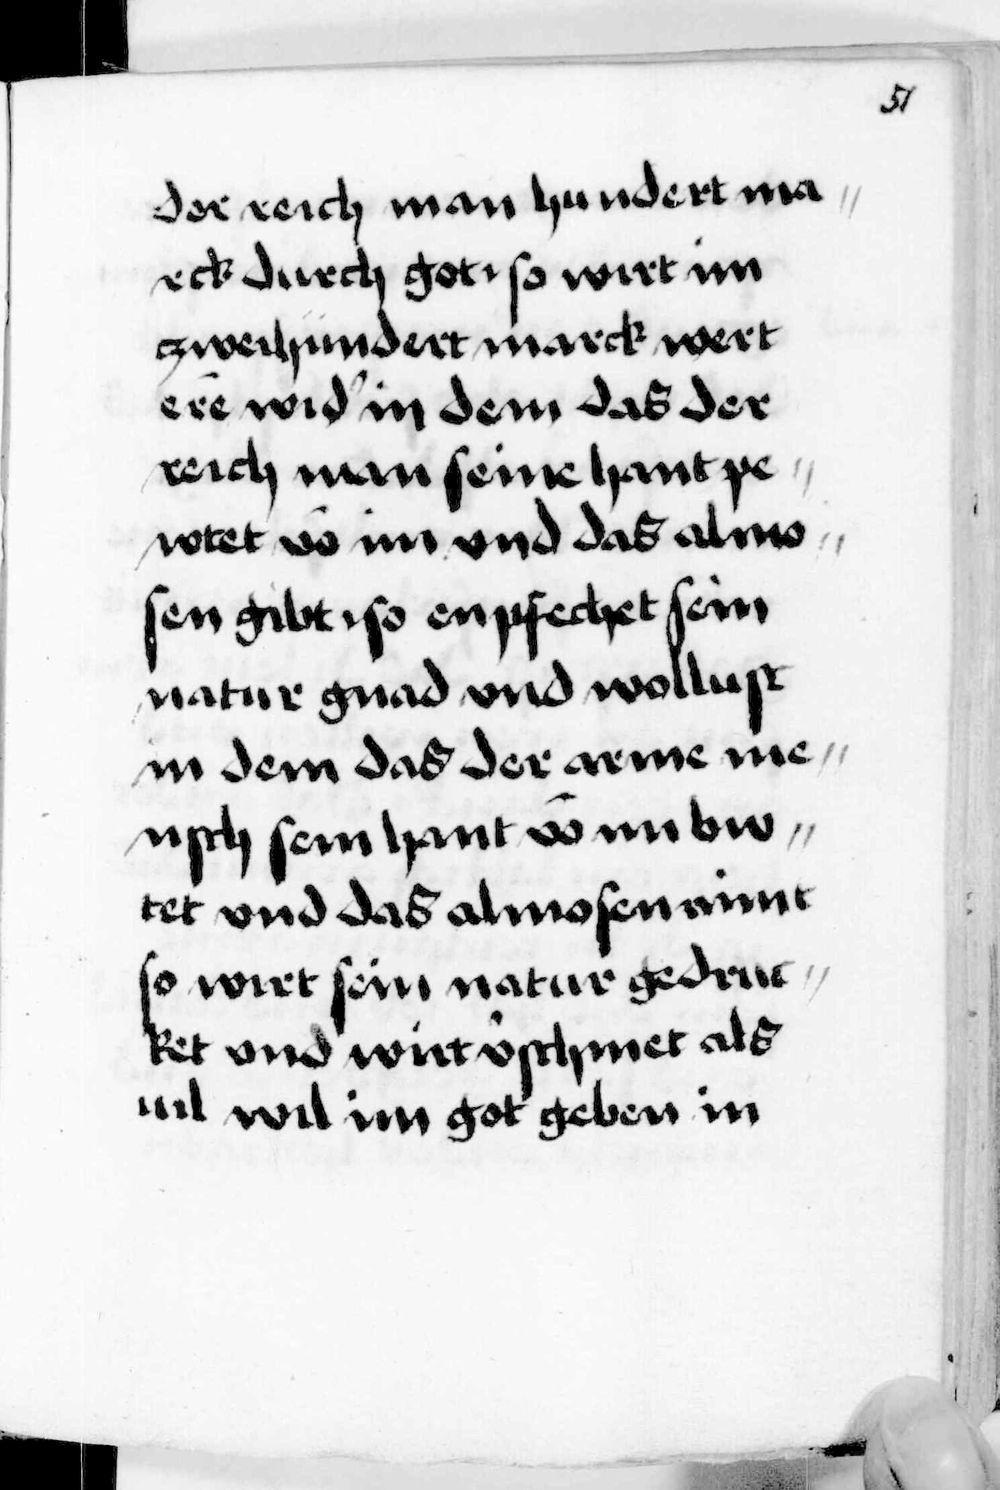 51
der reich man hundert ma//
rck durch got · so wirt im
zweihundert marck wert
erē wid' in dem das der
reich man seine hant pe//
wtet vō im vnd das almo//
sen gibt · so enpfechet sein
natur gnad vnd wollust
in dem das der arme me//
nsch sein hant vō im bw//
tet vnd das almosen nimt
so wirt sein natur gedruc//
ket vnd wirt v'schmet als
uil wil im got geben in